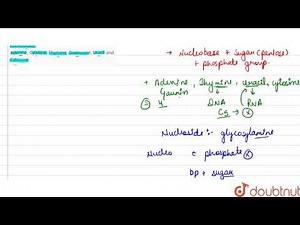 → Nucleobase + Sugar (pentose)
+ phosphate group.
→ Adenine, Thymine, Uracil, cytosine
Gaunin
② 4 DNA RNA
C5 → ⓧ
Nucleoside :- glycosylamine
Nucleo c phosphate
bp + sugar
doubtnut